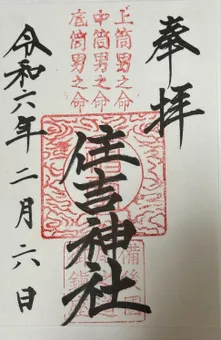 奉拝
上筒男之命
中筒男之命
底筒男之命
住吉神社
令和六年二月六日